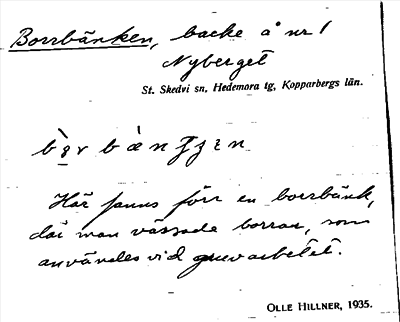 Borrbänken, backe å nr 1
Nyberget
St. Skedvi sn, Hedemora tg, Kopparbergs län.
Här fanns förr en borrbänk,
där man vässade borrar, som
användes vid gruvarbetet.
OLLE HILLNER, 1935.